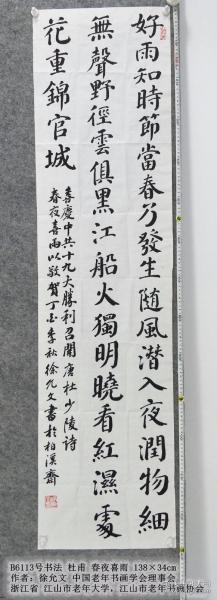 好雨知時節當春乃發生隨風潛入夜潤物細
無聲野徑雲俱黑江船火獨明曉看紅濕處
花重錦官城
喜慶中共十九大勝利召開唐杜少陵詩
春夜喜雨以敬賀丁酉季秋徐允文書於柏溪齋
B6113号书法 杜甫 春夜喜雨 138×34cm
作者：徐允文 中国老年书画学会理事会
浙江省 江山市老年大学，江山市老年书画协会